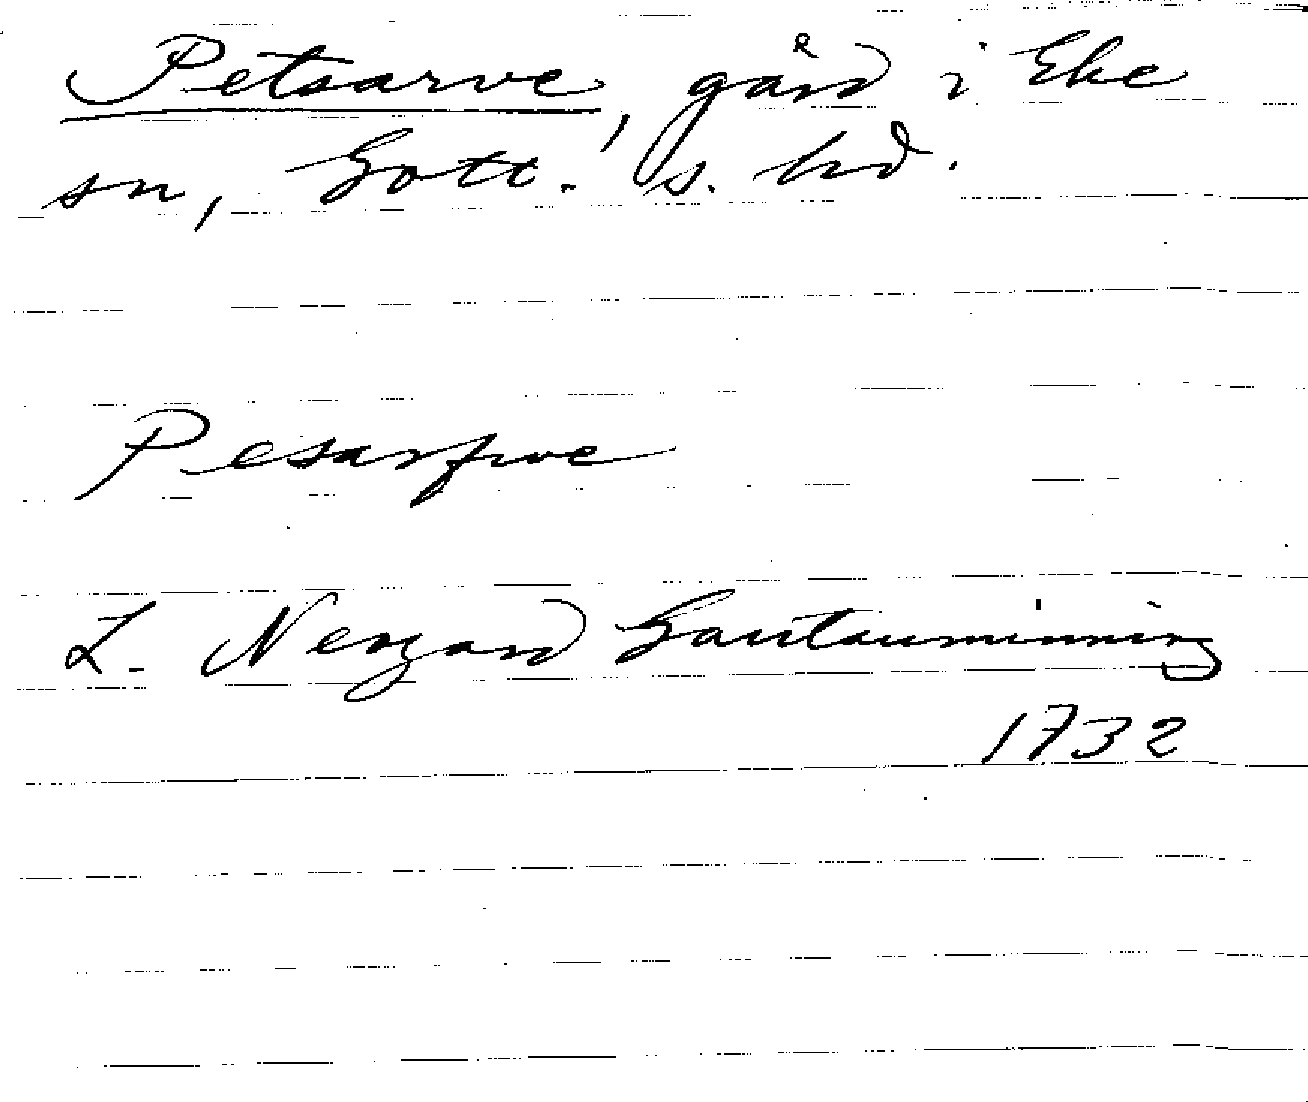 Petsarve, gård i Eke
sn, Gotl. s. hd.
Pesarfwe
L. Neogard Gautauminning
1732